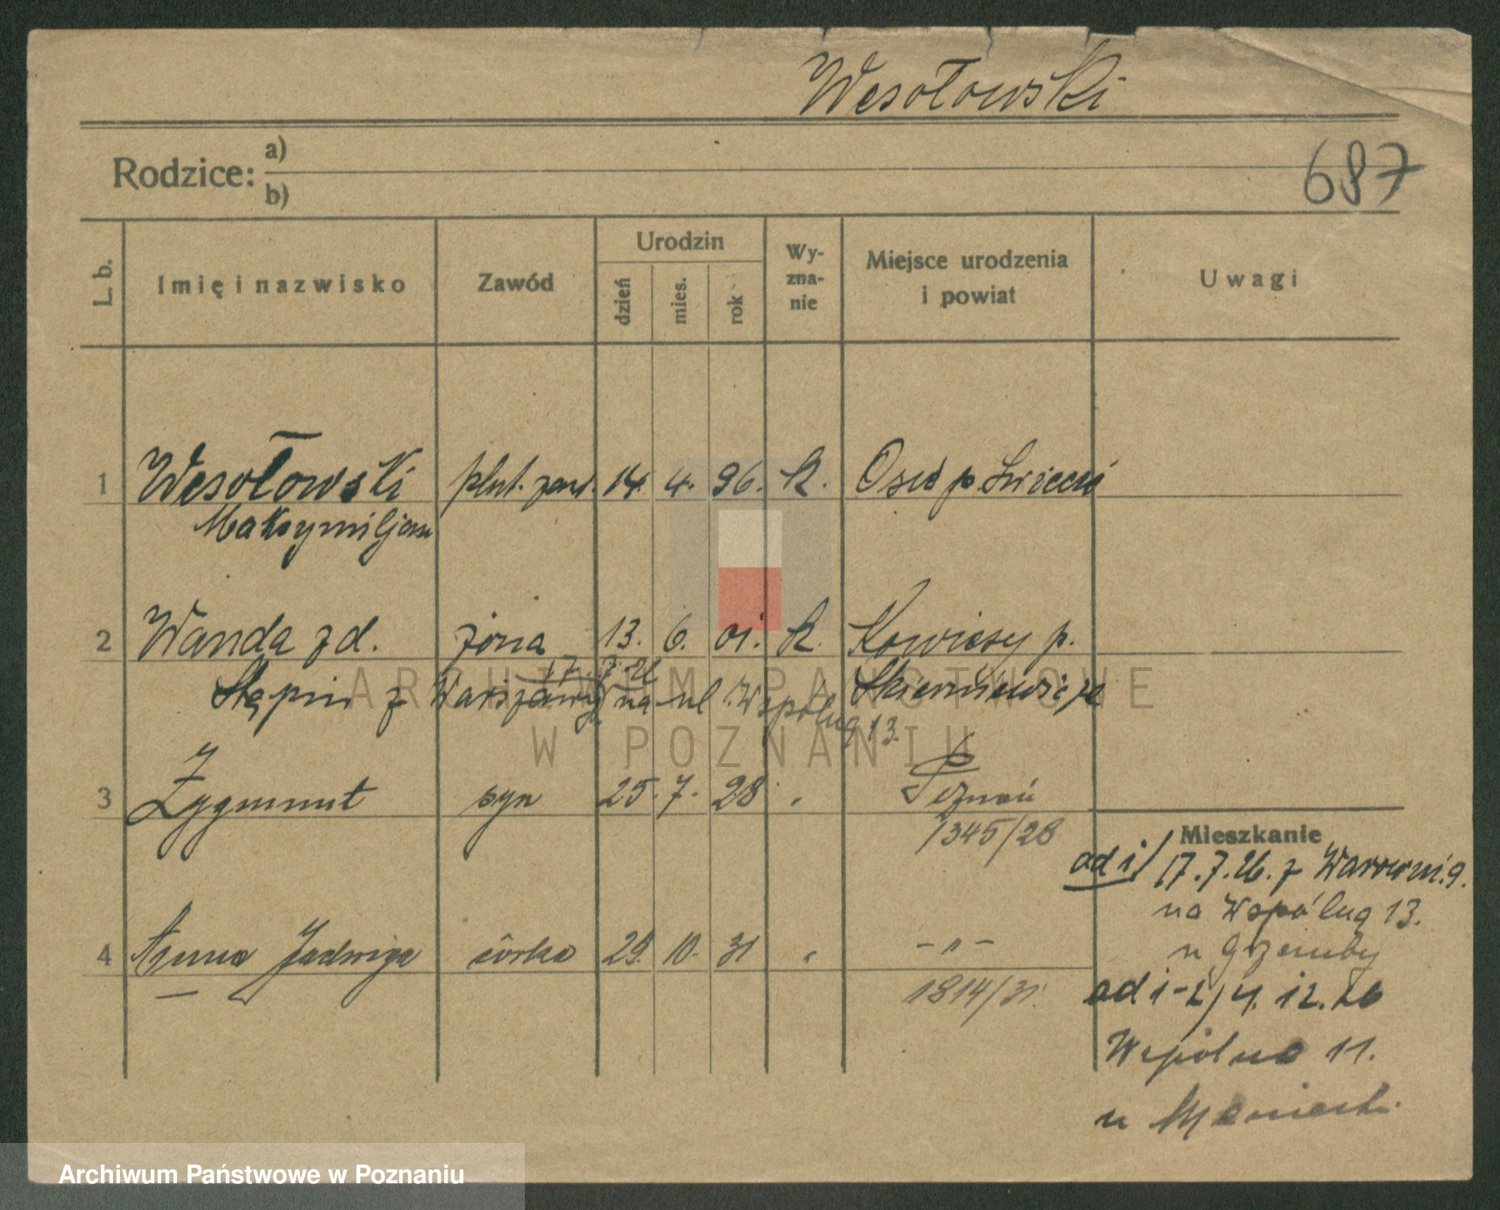 Wesołowski
687
Rodzice: a)
b)
L. b. Imię i nazwisko Zawód Urodzin dzień mies. rok Wy-zna-nie Miejsce urodzenia i powiat Uwagi
1 Wesołowski plut. zaw. 14. 4. 96. k. Osie p. Świecie
Maksymiljan
2 Wanda z d. żona 13. 6. 01. k. Kowiesy p.
17. 7. 26
Stępin z Warszawy na ul. Wspólną 13. Skierniewice
3 Zygmunt syn 25. 7. 28 " Poznań
1345/28
Mieszkanie
ad 1/ 17. 7. 26. z
na Wspólną 13.
4 Anna Jadwiga córka 29. 10. 31 " -"-
u Grzemby
1814/31.
ad 1-2/ 4. 12. 26
Wspólna 11.
u
ARCHIWUM PAŃSTWOWE
W POZNANIU
Archiwum Państwowe w Poznaniu